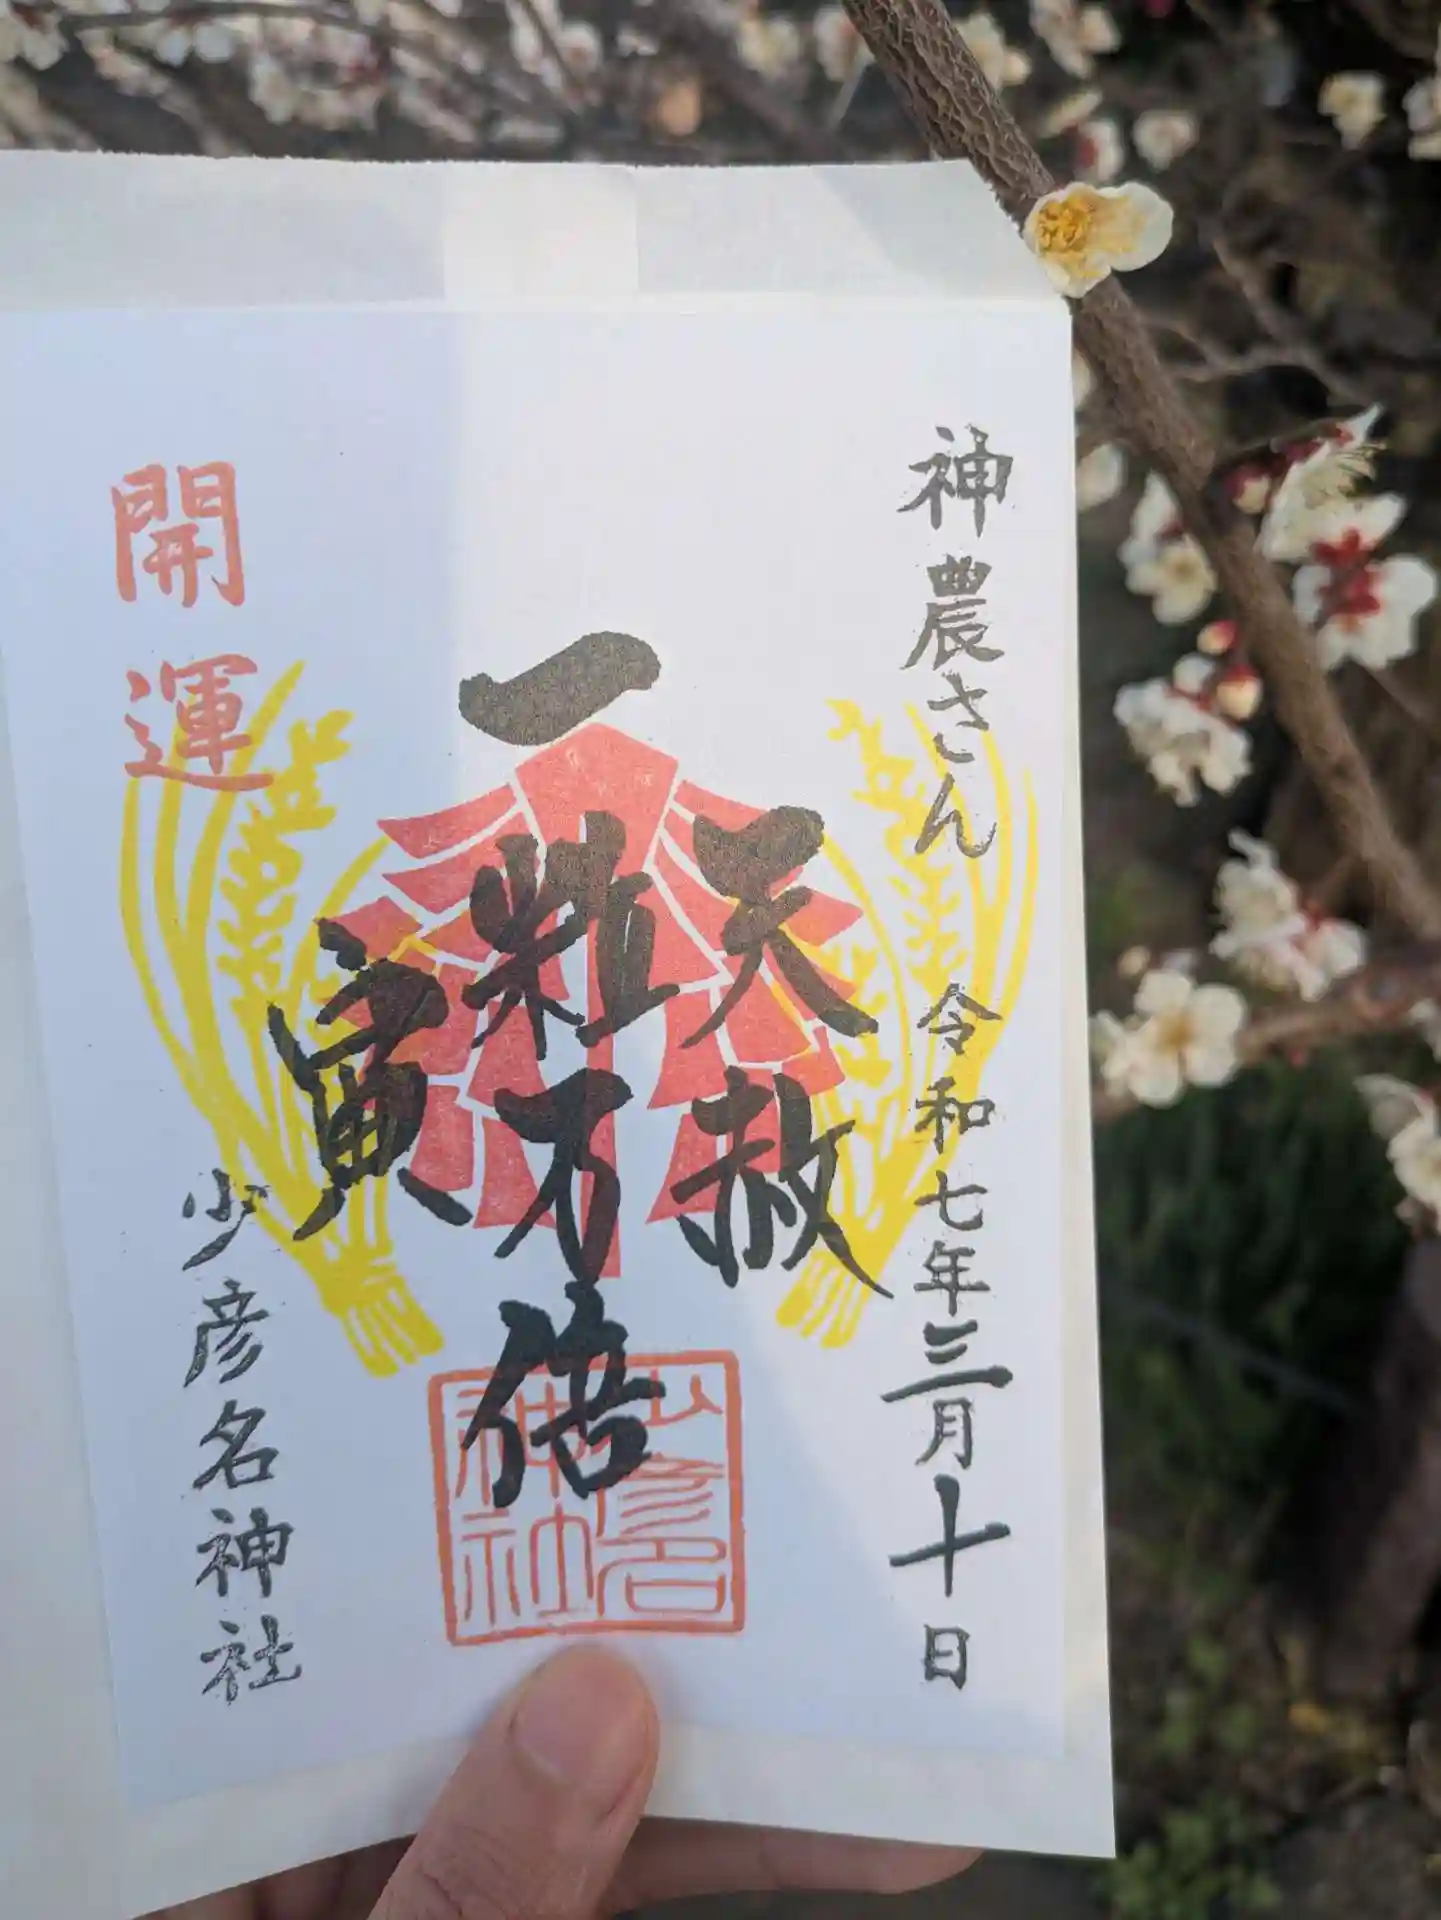 神農さん 令和七年三月十日
天赦
一粒万倍
寅
開運
少彦名神社
少彦名
神社